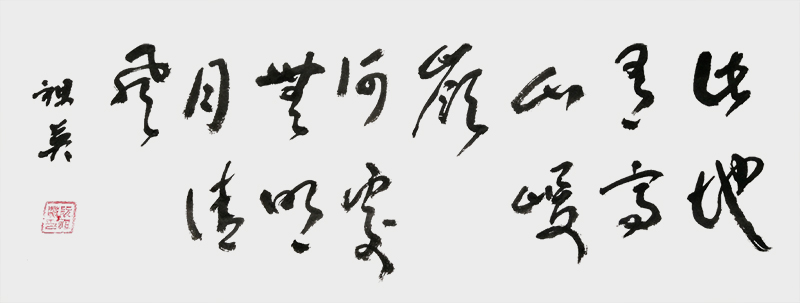 此地
有高
山峻
嶺
何處
無明
月清
風
祖英